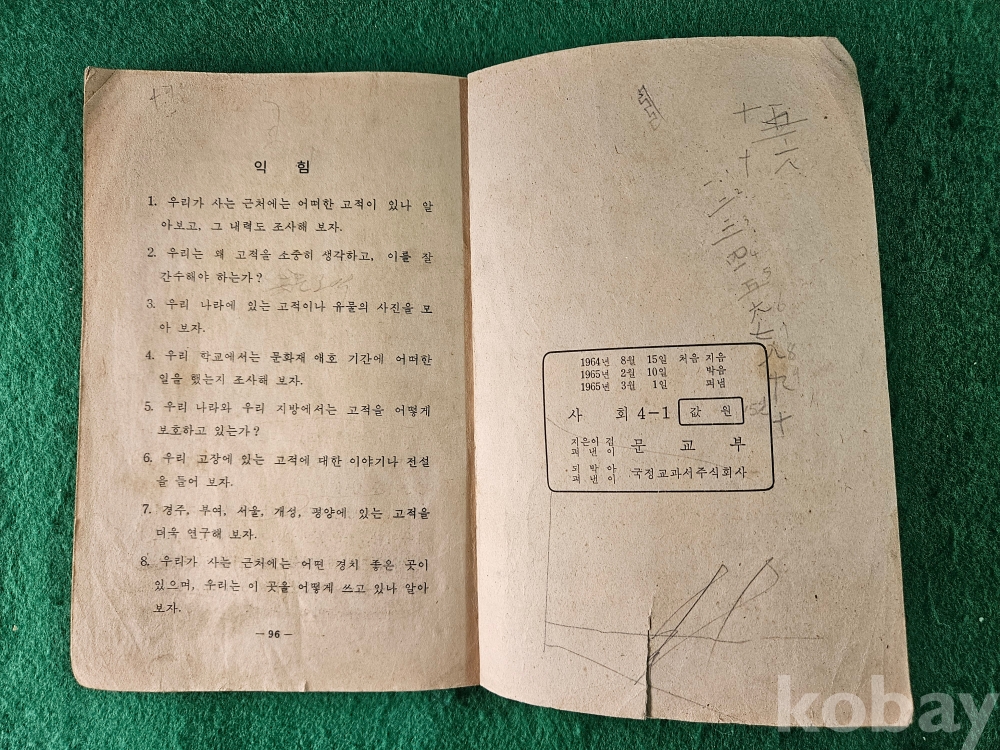 익 힘
1. 우리가 사는 근처에는 어떠한 고적이 있나 알
아보고, 그 내력도 조사해 보자.
2. 우리는 왜 고적을 소중히 생각하고, 이를 잘
간수해야 하는가?
3. 우리 나라에 있는 고적이나 유물의 사진을 모
아 보자.
4. 우리 학교에서는 문화재 애호 기간에 어떠한
일을 했는지 조사해 보자.
5. 우리 나라와 우리 지방에서는 고적을 어떻게
보호하고 있는가?
6. 우리 고장에 있는 고적에 대한 이야기나 전설
을 들어 보자.
7. 경주, 부여, 서울, 개성, 평양에 있는 고적을
더욱 연구해 보자.
8. 우리가 사는 근처에는 어떤 경치 좋은 곳이
있으며, 우리는 이 곳을 어떻게 쓰고 있나 알아
보자.
— 96 —
十 五 六
十
一 二 三 四 五 六 七 八 九 十
1964년 8월 15일 처음 지음
1965년 2월 10일 박음
1965년 3월 1일 펴냄
사 회 4-1 값 원
지은이 겸
펴 낸 이 문 교 부
되 박 아
펴 낸 이 국정교과서주식회사
kobay